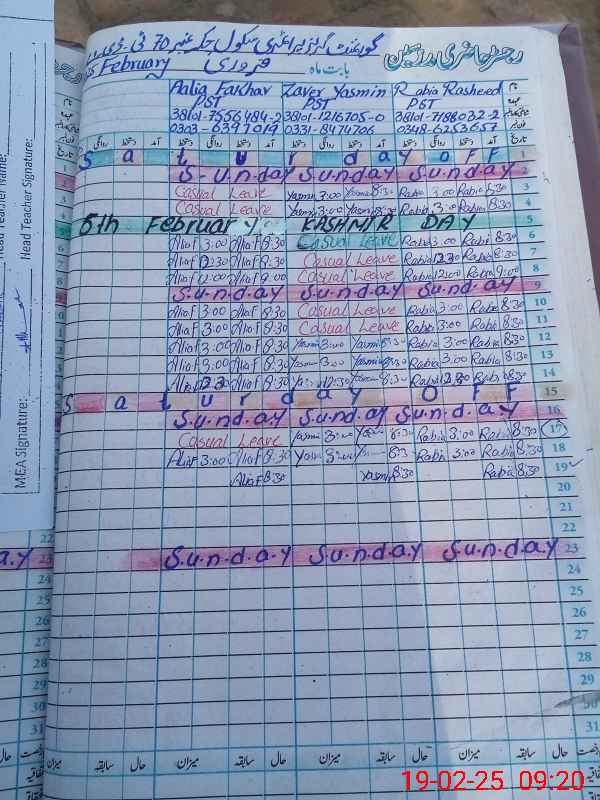 رجسٹر حاضری مدرسین
گورنمنٹ گرلز پرائمری سکول چک نمبر 70
February فروری بابت ماہ
Aalia Fakhar Zaver Yasmin Rabia Rasheed
PST PST PST
38101-7556484-2 38101-1216705-0 38101-7188032-2
0303-6397019 0331-8474706 0348-6253657
تاریخ دستخط آمد دستخط روانگی دستخط آمد دستخط روانگی دستخط آمد دستخط روانگی
S a t u r d a y o F F 1
S-unday Sunday Sunday 2
Casual Leave Yasmin 3:00 Yasmin 8:30 Rabia 3:00 Rabia 8:30 3
Casual Leave Yasmin 3:00 Yasmin 8:30 Rabia 3:00 Rabia 8:30 4
5th February KASHMIR DAY 5
Alia F 3:00 Alia F 8:30 Casual Leave Rabia 3:00 Rabia 8:30 6
Alia F 12:30 Alia F 8:30 Casual Leave Rabia 12:30 Rabia 8:30 7
Alia F 12:00 Alia F 9:00 Casual Leave Rabia 12:00 Rabia 9:00 8
S.u.n.d.a.y S.u.n.d.a.y Sunday 9
Alia F 3:00 Alia F 8:30 Casual Leave Rabia 3:00 Rabia 8:30 10
Alia F 3:00 Alia F 8:30 Casual Leave Rabia 3:00 Rabia 8:30 11
Alia F 3:00 Alia F 8:30 Yasmin 3:00 Yasmin 8:30 Rabia 3:00 Rabia 8:30 12
Alia F 3:00 Alia F 8:30 Yasmin 3:00 Yasmin 8:30 Rabia 3:00 Rabia 8:30 13
Alia F 12:30 Alia F 8:30 Yas 12:30 Yasmin 8:30 Rabia 12:30 Rabia 8:30 14
S a t u r d a y O F F 15
S.u.n.d.a.y S.u.n.d.a.y S.u.n.d.a.y 16
Casual Leave Yasmin 3:00 Yasmin 8:30 Rabia 3:00 Rabia 8:30 17
Alia F 3:00 Alia F 8:30 Yasmin 3:00 8:30 Rabia 3:00 Rabia 8:30 18
Alia F 8:30 Yasmin 8:30 Rabia 8:30 19
20
21
22
S.u.n.d.a.y S.u.n.d.a.y S.u.n.d.a.y 23
24
25
26
27
28
29
30
31
میزان حال سابقہ میزان حال سابقہ میزان حال سابقہ
Head Teacher Name:
Head Teacher Signature:
MEA Signature:
22
a.y 23
24
25
26
27
28
29
30
31
19-02-25 09:20